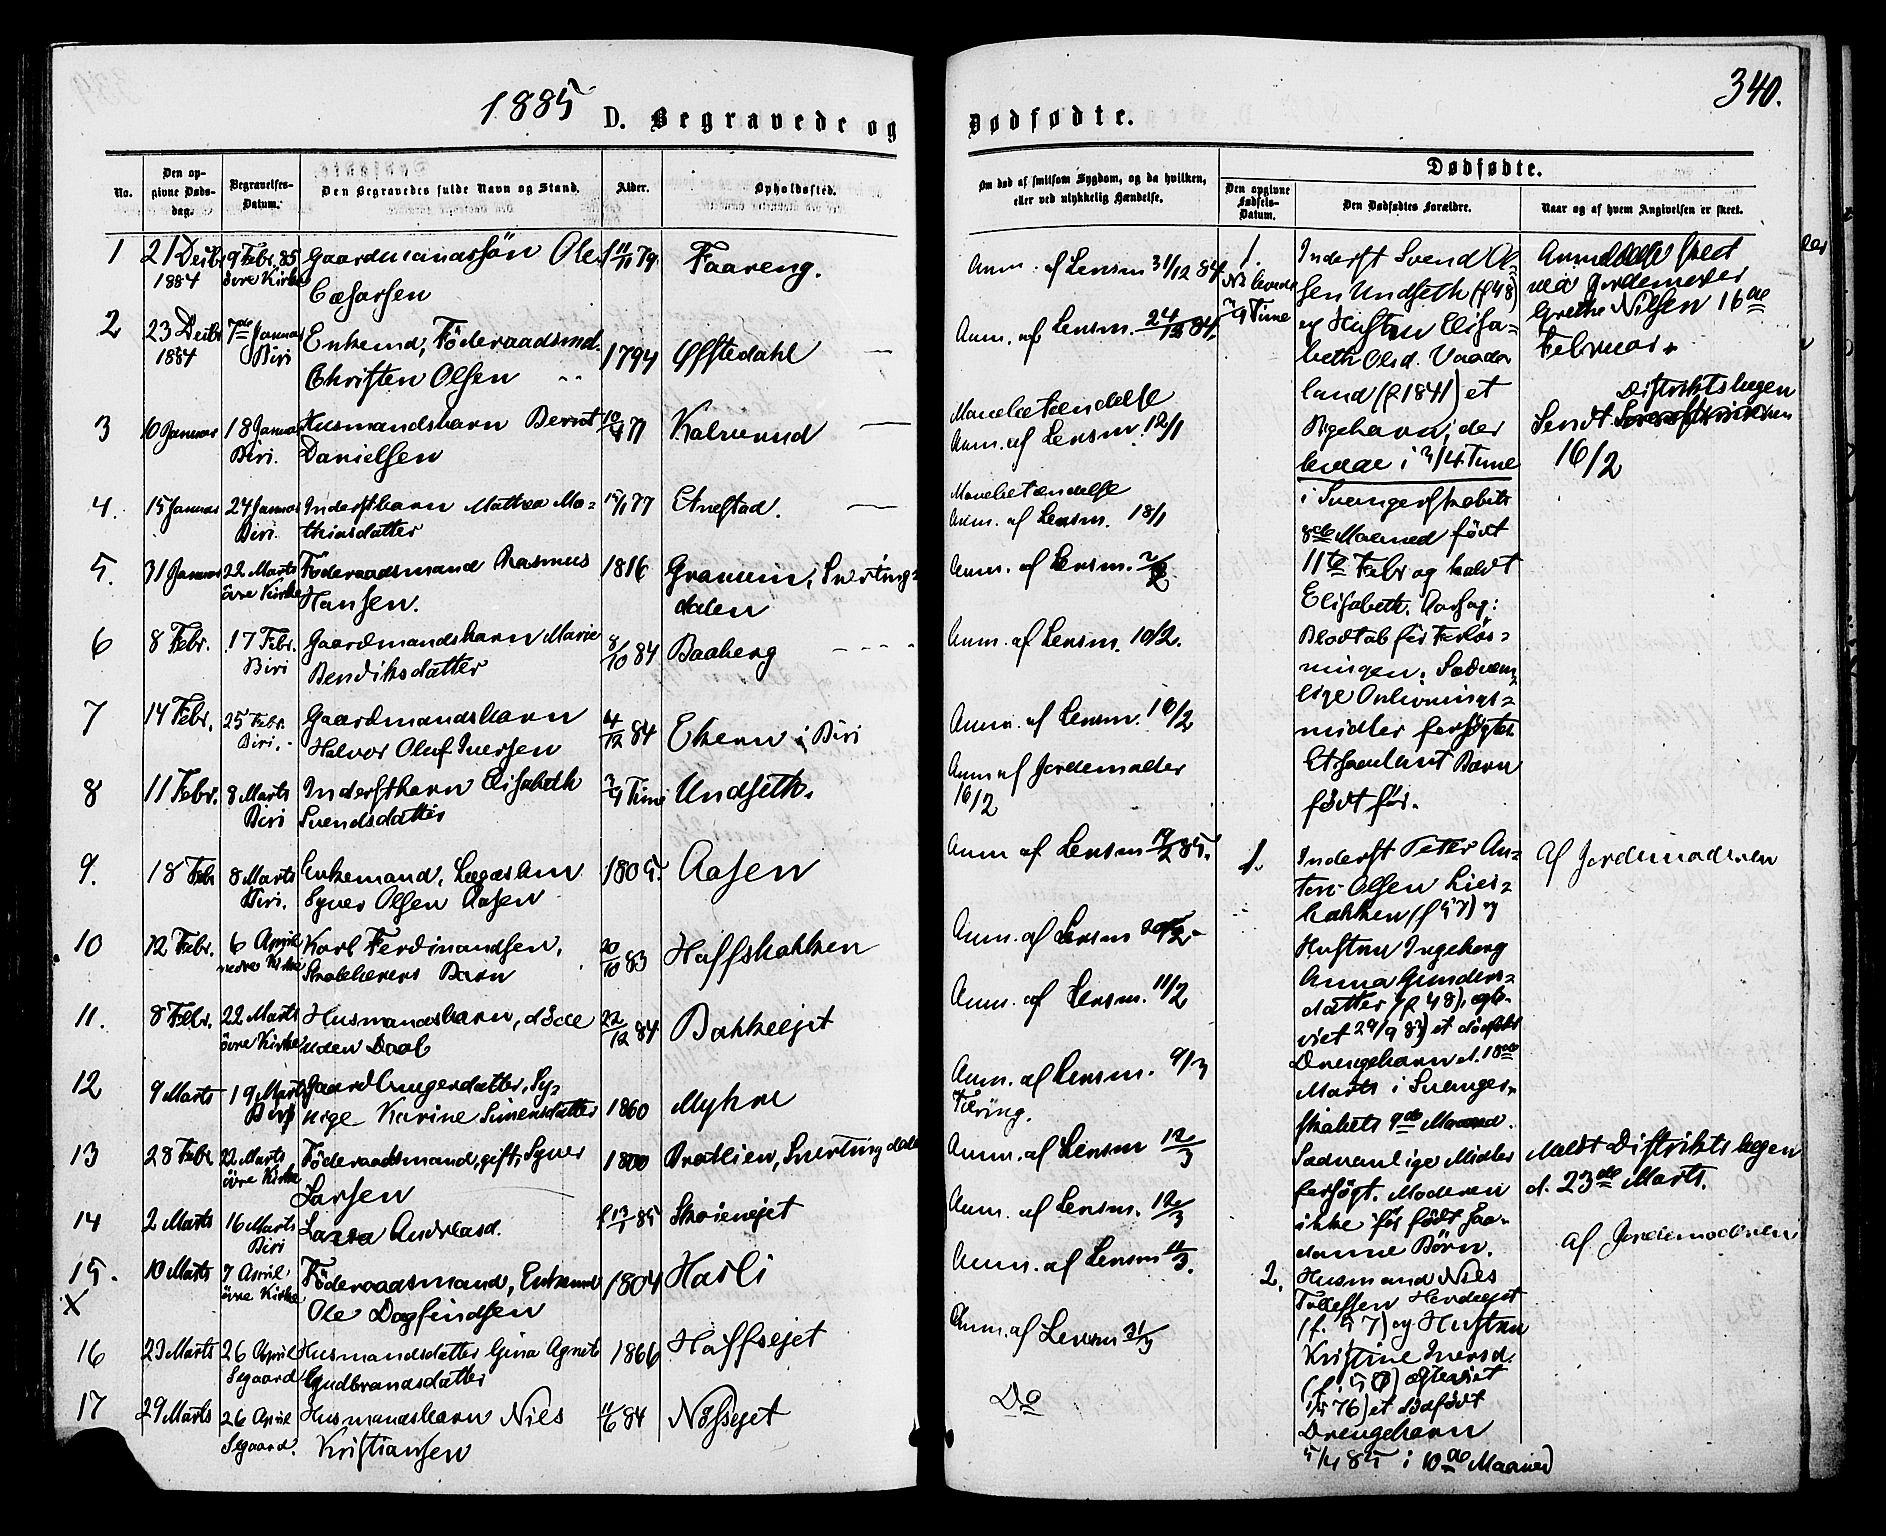 1885
D. Begravede og
No.
Den op-
givne Døds-
dag.
Begravelses-
Datum.
Den Begravedes fulde Navn og Stand.
Alder.
Opholdssted.
1
21 Decbr
1884
9 Febr. 85
övre Kirke
Gaardmandssøn Ole
Cæsarsen
f 11/11 79
Faareng.
2
23 Decbr
1884
7de Januar
Biri
Enkemd, Föderaadsmd.
Christen Olsen
1794
Offstedahl
3
6 Januar
18 Januar
Biri.
Husmandsbarn Bernt
Danielsen
77
Kalrud
4.
15 Januar
24 Januar
Biri.
Inderstbarn Mathea Ma-
thiasdatter
15/1 77
Enestad.
5.
31 Januar
22 Marts
övre Kirke
Föderaadsmand Rasmus
Hansen.
1816
Snerting-
dalen
6
8 Febr.
17 Febr.
Biri
Gaardmandsbarn Marie
Bendiksdatter
8/10 84
Baaberg
7
14 Febr.
25 Febr.
Biri.
Gaardmandsbarn
Halvor Oluf Iversen
4/12 84
Ekern i Biri
8
11 Febr.
8 Marts
Biri
Inderstbarn Elisabeth
Svendsdatter
3/4 Time
Undseth.
9.
18 Febr
8 Marts
Biri.
Enkemand, Lægdslem
Syver Olsen Aasen
1805.
Aasen
10
12 Febr.
6 April
nedre Kirke
Karl Ferdinandsen,
Barn
20/10 83
Haffsbakken
11.
8 Febr.
22 Marts
övre Kirke
Husmandsbarn, döde
uden Daab
22/12 84
Bakkeejet
12
9 Marts
19 Marts
Biri
Gaardbrugerdatter, Sy-
nige Karine Simensdatter
1860
Myhre
13
28 Febr
22 Marts
övre Kirke
Föderaadsmand, gift, Syver
Larsen
1800
Bratlien, Snertingdalen
14
2 Marts
16 Marts
Biri
Andreasd.
f 13/1 85
Skoienejet
15.
X
10 Marts
7 April
övre Kirke
Föderaadsmand, Enkemd
Ole Dagfindsen
1804
Hasli
16
23 Marts
26 April
Segaard
Husmandsdatter Gina Agnete
Gudbrandsdatter
1866
Haffsejet
17
29 Marts
26 April
Segaard.
Husmandsbarn Nils
Kristiansen
11/6 84
Nøssejet
340.
Dødfødte.
Om død af smitsom Sygdom, og da hvilken,
eller ved ulykkelig Hændelse.
Dødfødte.
Den opgivne
Fødsels-
Datum.
Den Dødfødtes Forældre.
Naar og af hvem Angivelsen er skeet.
Anm. af Lensm 31/12 84.
Anm. af Lensm. 24/12 84.
Mavebetændelse
Anm. af Lensm. 12/1
Mavebetændelse
Anm. af Lensm. 18/1
Anm. af Lensm. 2/2
Anm. af Lensm. 10/2.
Anm. af Lensm. 16/2
Anm af Jordemoder
16/2
Anm af Lensm 19/2 85.
Anm. af Lensm
Anm. af Lensm. 11/2
Anm. af Lensm. 9/3
Tæring.
Anm. af Lensm 12/3
Anm. af Lensm. 12/3
Anm. af Lensm 11/3.
Anm. af Lensm 31/3
Do
1.
3/4 Time
Inderst Svend Ol-
sen Undseth (f 48)
og Hustru Elisa-
beth Olsd. Vaada-
land (f 1841) et
Pigebarn, der
levede i 3/4 Time
i Svangerskabets
8de Maaned født
11te Febr og kaldt
Elisabeth. Aarsag:
Blodtab før Forløs-
ningen. Sædvan-
lige Oplivnings-
midler forsögtes
Et saadant Barn
födt för.
Anmeldelse skeet
ved Jordemoder
Grethe Nilsen 16de
Februar.
Sendt Distriktslægen
16/2
1.
Inderst Peter An-
ton Olsen Lier-
bakken (f 57) og
Hustru Ingeborg
Anna Gunders-
datter (f 48),ægte-
viet 29/9 83) et dødfødt
Drengebarn d. 18de
Marts i Svanger-
skabets 9de Maaned.
Sædvanlige Midler
forsögt. Moderen
ikke för födt saa-
danne Børn.
Af Jordemoderen
Meldt Distriktslægen
d. 23de Marts.
2.
Husmand Nils
Tollefsen
(f. 57) og Hustru
Kristine Iversd.
(f. 50) ægteviet
76) et dødfødt
Drengebarn
5/4 85 i 10de Maaned
af Jordemoderen